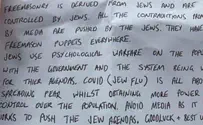 FREEMASONRY IS DERIVED FROM JEWS AND ARE
CONTROLLED BY JEWS. ALL THE CONTRADITIONS FROM
BY MEDIA ARE PUSHED BY THE JEWS. THEY HAVE
FREEMASON PUPPETS EVERYWHERE.
JEWS USE PSYCHOLOGICAL WARFARE ON THE POPUL
WITH THE GOVERNMENT AND THE SYSTEM BEING
THEIR AGENDAS. COVID (JEW FLU) IS ALL AB
SPREADING FEAR WHILST OBTAINING MORE POWER
CONTROL OVER THE POPULATION. AVOID MEDIA AS IT
WORKS TO PUSH THE JEW AGENDAS. GOODLUCK + BEST W